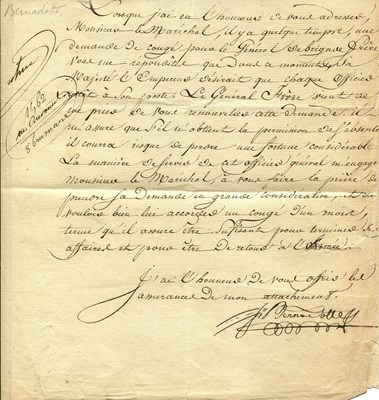 Bernadotte
Lorsque j'ai eu l'honneur de vous adresser,
Monsieur le Maréchal, il y a quelque temps, une
demande de congé pour le Général de brigade Frère
vous me repondites que dans ce moment, Sa
Majesté l'Empereur désirait que chaque officier
restât à son poste. Le Général Frère vient de
me prier de vous renouveller cette demande, il
m'assure que s'il n'obtient la permission de s'absenter
il courra risque de perdre une fortune considérable
La manière de servir de cet officier général m'engage
Monsieur le Maréchal, à vous faire la prière de
prendre sa demande en grande considération, et de
vouloir bien lui accorder un congé d'un mois,
terme qu'il assure être suffisant pour terminer ses
affaires et pour être de retour à l'Armée.
J'ai l'honneur de vous offrir les
assurances de mon attachement.
Bernadotte
8 brumaire